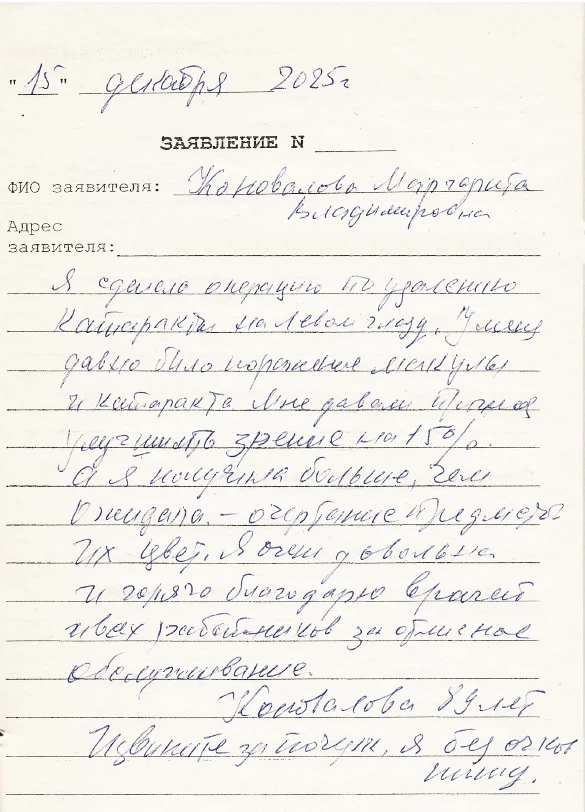 "15" декабря 2025г
ЗАЯВЛЕНИЕ N
ФИО заявителя: Коновалова Маргарита
Владимировна
Адрес
заявителя:
Я сделала операцию по удалению
катаракты на левом глазу. У меня
давно было поражение макулы
и катаракта. Мне давали прогноз
улучшить зрение на 15%.
А я получила больше, чем
ожидала. – очертание предметов
их цвет. Я очень довольна
и горячо благодарю врачей
и всех работников за отличное
обслуживание.
Коновалова 89 лет
Извините за почерк, я без очков
пишу.